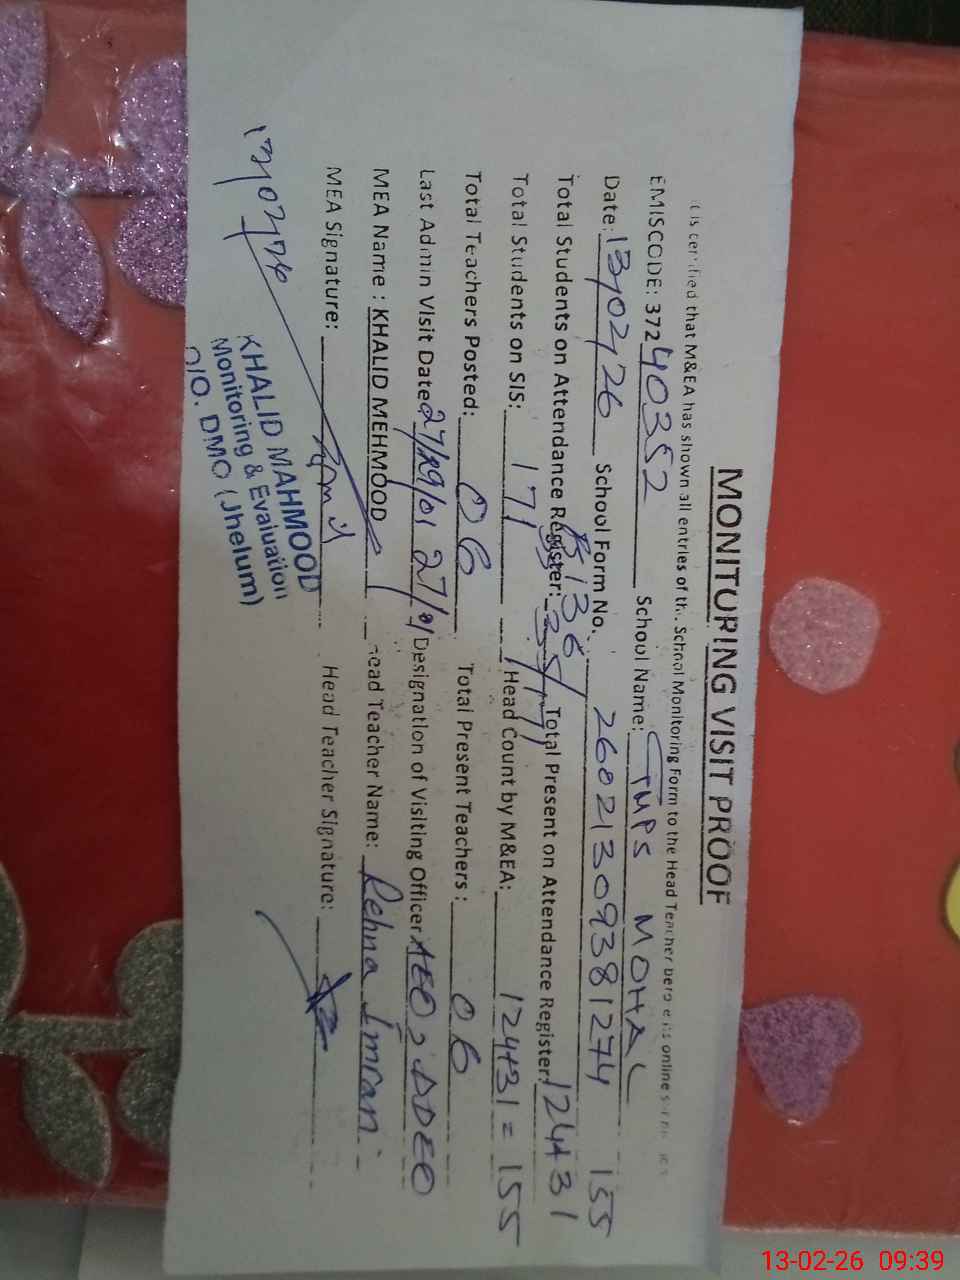 MONITORING VISIT PROOF
It is certified that M&EA has shown all entries of the School Monitoring Form to the Head Teacher before its online
EMISCODE: 37240352 School Name: GMPS MOHAL
Date: 13/02/26 School Form No. 26021309381274 155
Total Students on Attendance Register: 136 35/171 Total Present on Attendance Register: 124+31
Total Students on SIS: 171 Head Count by M&EA: 124+31 = 155
Total Teachers Posted: 06 Total Present Teachers: 06
Last Admin Visit Date 27/01 Designation of Visiting Officer AEO, DDEO
MEA Name : KHALID MEHMOOD Head Teacher Name: Rehna Imran
MEA Signature: Head Teacher Signature:
13/02/26
KHALID MAHMOOD
Monitoring & Evaluation
O/O. DMO (Jhelum)
13-02-26 09:39